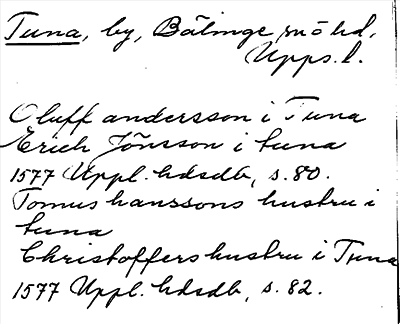 Tuna, by, Bälinge snöhd,
Upps. l.
Oluff andersson i Tuna
Erich Jönsson i tuna
1577 Uppl. hdsdb, s. 80.
Tomus hanssons hustru i
tuna
Christoffers hustru i Tuna
1577 Uppl. hdsdb, s. 82.